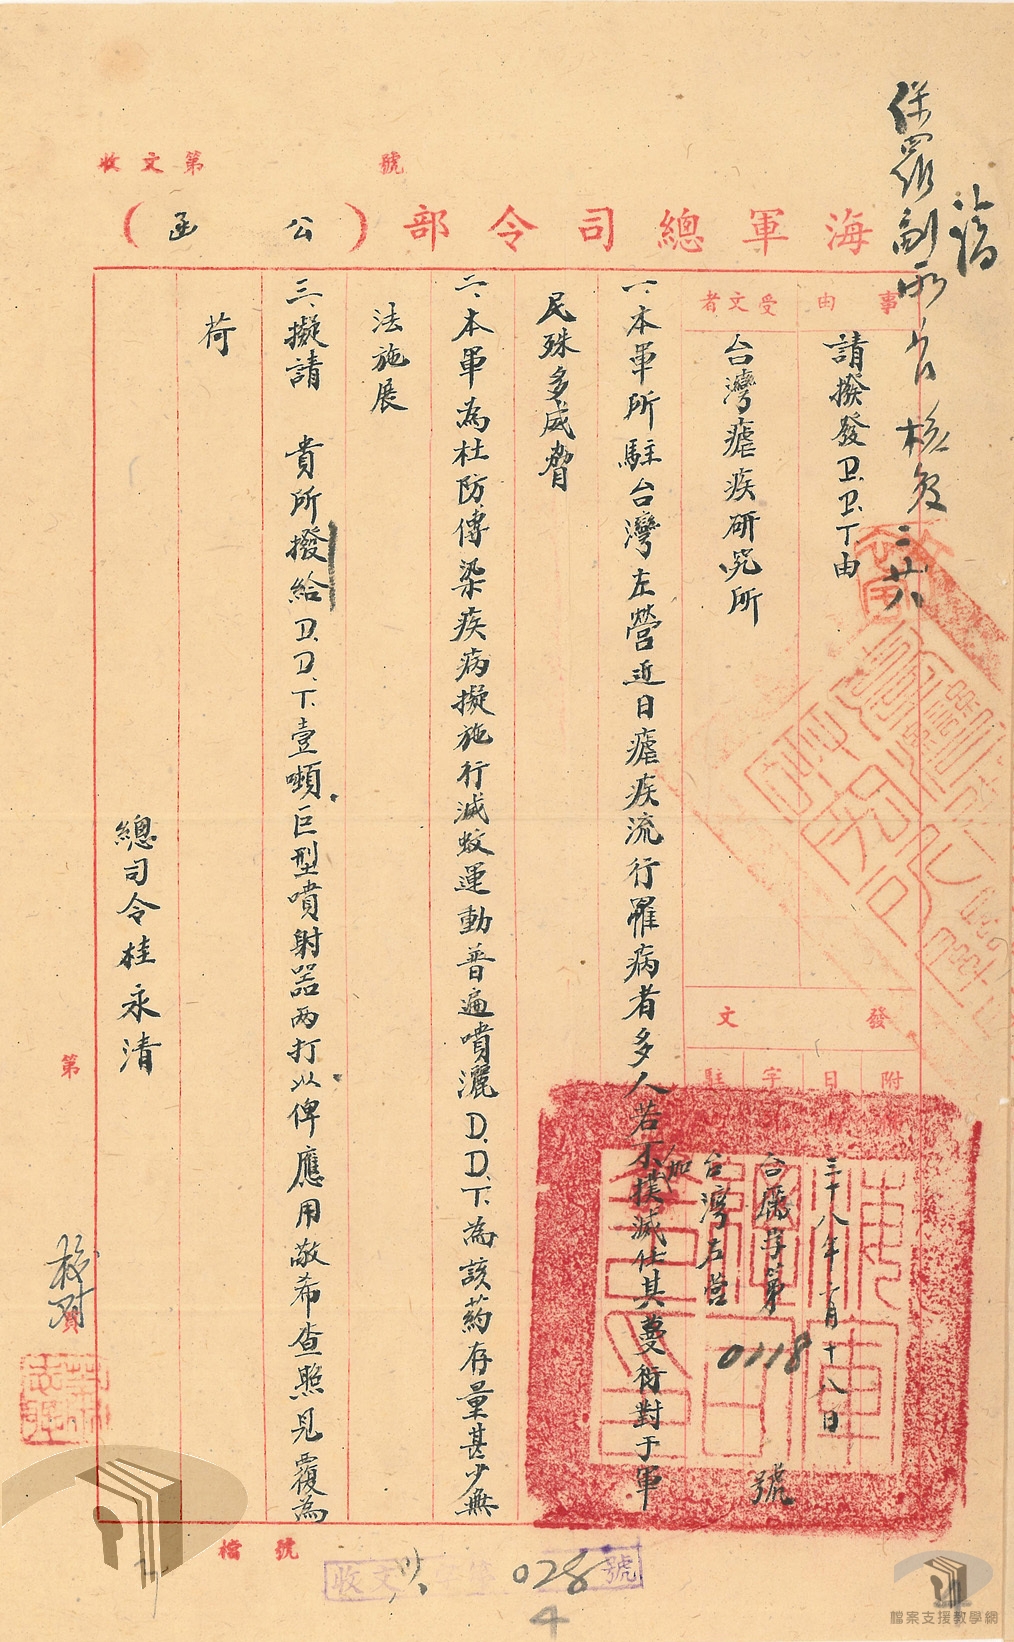 收文第 號
海軍總司令部（公函）
事由
請撥發D.D.T.由
受文者
台灣瘧疾研究所
發文
附
日
字
駐
三十八年 月十八日
字第0118號
台灣左營
一、本軍所駐台灣左營近日瘧疾流行罹病者多人若不撲滅任其蔓衍對于軍
民殊多威脅
二、本軍為杜防傳染疾病擬施行滅蚊運動普遍噴灑D.D.T.為該药存量甚少無
法施展
三、擬請 貴所撥給D.D.T.壹噸巨型噴射器两打以俾應用敬希查照見覆為
荷
總司令桂永清
第
校對
檔號
收文 028 號
4
檔案支援教學網